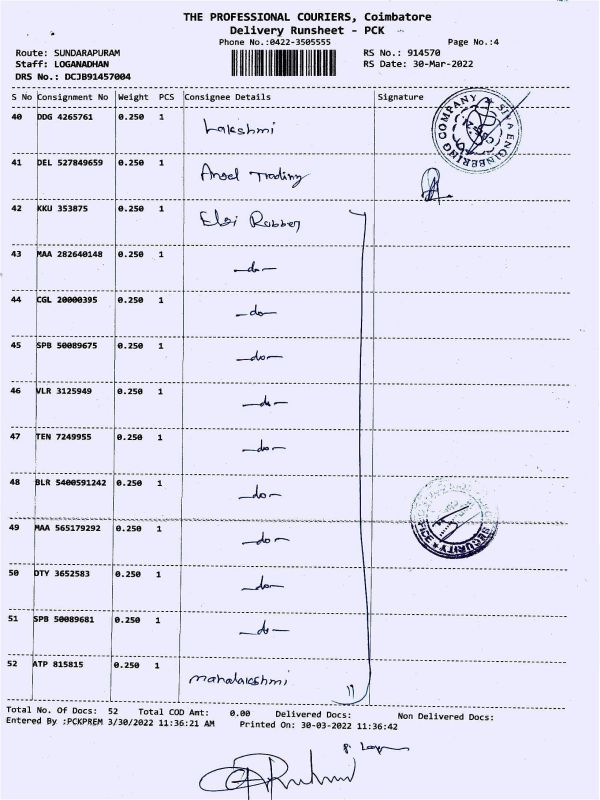 THE PROFESSIONAL COURIERS, Coimbatore
Delivery Runsheet - PCK
Phone No.:0422-3505555 Page No.:4
Route: SUNDARAPURAM RS No.: 914570
Staff: LOGANADHAN RS Date: 30-Mar-2022
DRS No.: DCJB91457004
S No Consignment No Weight PCS Consignee Details Signature
40 DDG 4265761 0.250 1 Lakshmi
SIVA ENGINEERING COMPANY
41 DEL 527849659 0.250 1 Angel Trading
42 KKU 353875 0.250 1 Elgi Rubber
43 MAA 282640148 0.250 1 -do-
44 CGL 20000395 0.250 1 -do-
45 SPB 50089675 0.250 1 -do-
46 VLR 3125949 0.250 1 -do-
47 TEN 7249955 0.250 1 -do-
48 BLR 5400591242 0.250 1 -do-
SECURITY OFFICE
49 MAA 565179292 0.250 1 -do-
50 DTY 3652583 0.250 1 -do-
51 SPB 50089681 0.250 1 -do-
52 ATP 815815 0.250 1 mahalakshmi
Total No. Of Docs: 52 Total COD Amt: 0.00 Delivered Docs: Non Delivered Docs:
Entered By :PCKPREM 3/30/2022 11:36:21 AM Printed On: 30-03-2022 11:36:42